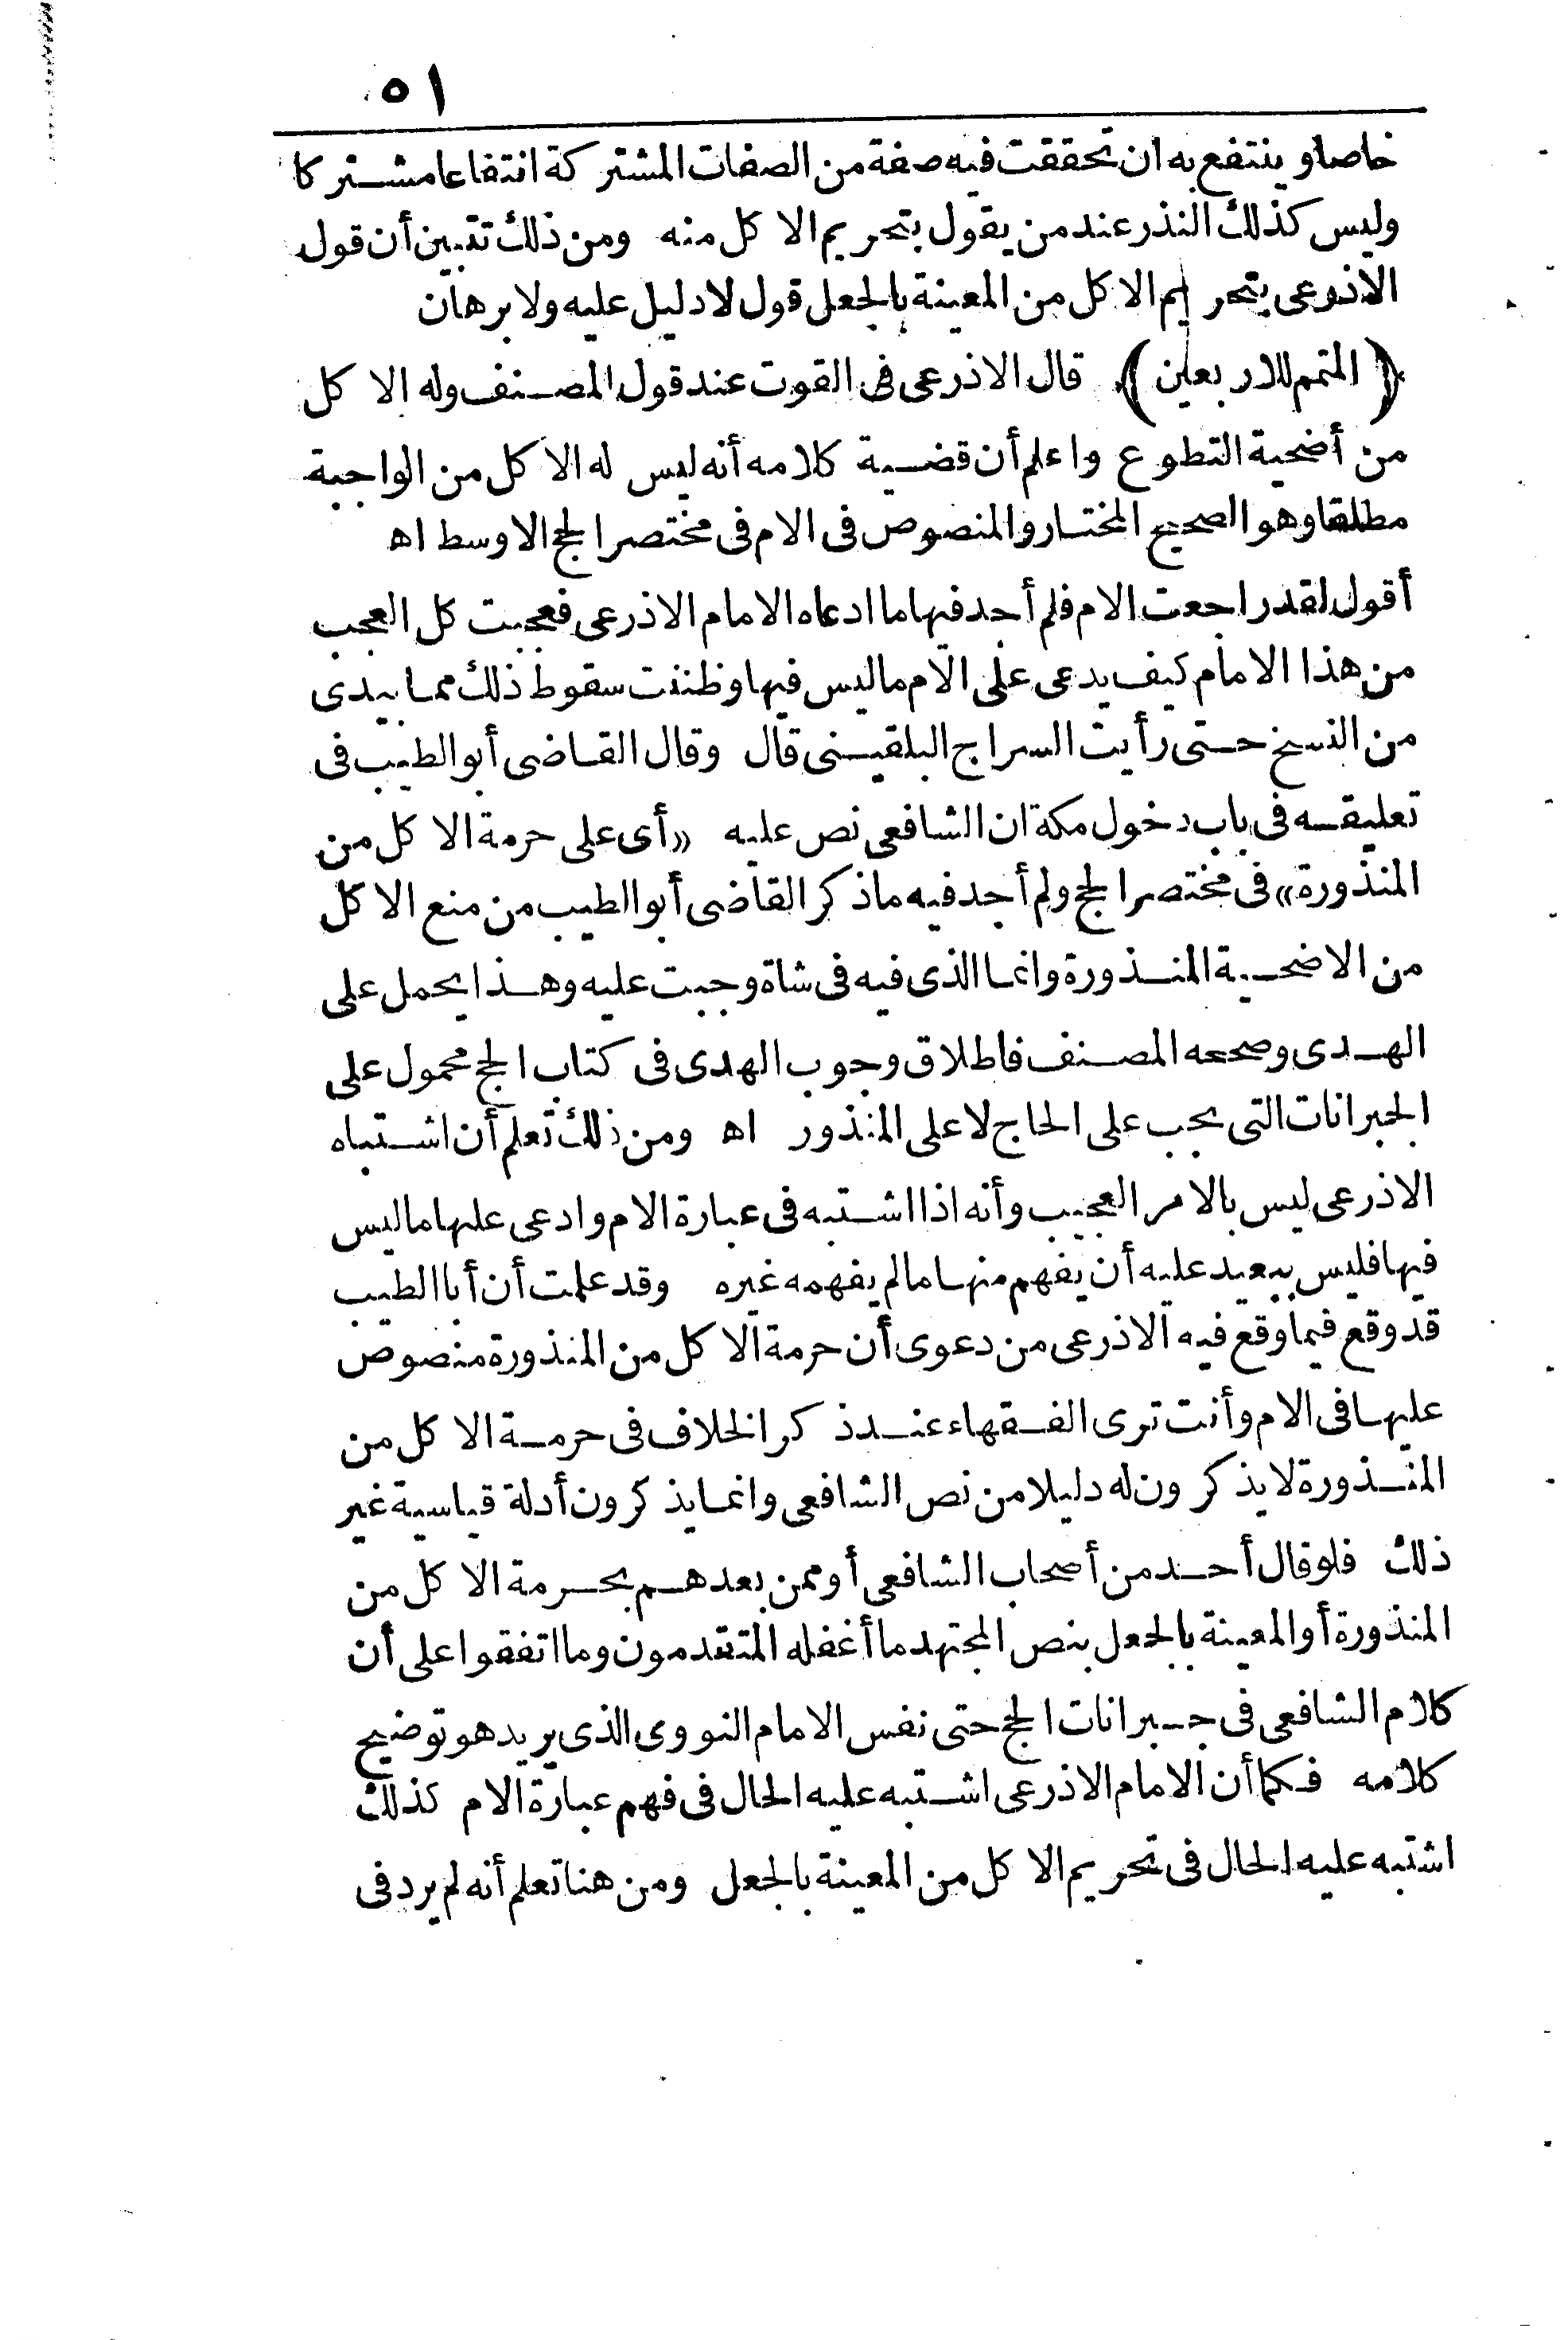 ٥١
خاصا وينتفع به ان تحققت فيه صفة من الصفات المشتركة انتفاعا مشتركا
وليس كذلك النذر عند من يقول بتحريم الاكل منه ومن ذلك تتبين أن قول
الاذرعى بتحريم الاكل من المعينة بالجعل قول لا دليل عليه ولا برهان
﴿ المتمم للاربعين ﴾ قال الاذرعى فى القوت عند قول المصنف وله الاكل
من أضحية التطوع واعلم أن قضية كلامه أنه ليس له الاكل من الواجبة
مطلقا وهو الصحيح المختار والمنصوص فى الام فى مختصر الحج الاوسط اه
أقول لقد راجعت الام فلم أجد فيها ما ادعاه الامام الاذرعى فعجبت كل العجب
من هذا الامام كيف يدعى على الام ما ليس فيها وظننت سقوط ذلك مما بيدى
من النسخ حتى رأيت السراج البلقينى قال وقال القاضى أبو الطيب فى
تعليقه فى باب دخول مكة ان الشافعى نص عليه «أى على حرمة الاكل من
المنذورة» فى مختصر الحج ولم أجد فيه ما ذكر القاضى أبو الطيب من منع الاكل
من الاضحية المنذورة وانما الذى فيه فى شاة وجبت عليه وهذا يحمل على
الهدى وصححه المصنف فاطلاق وجوب الهدى فى كتاب الحج محمول على
الجبرانات التى يجب على الحاج لا على المنذور اه ومن ذلك تعلم أن اشتباه
الاذرعى ليس بالامر العجيب وأنه اذا اشتبه فى عبارة الام وادعى عليها ما ليس
فيها فليس ببعيد عليه أن يفهم منها ما لم يفهمه غيره وقد علمت أن أبا الطيب
قد وقع فيما وقع فيه الاذرعى من دعوى أن حرمة الاكل من المنذورة منصوص
عليها فى الام وأنت ترى الفقهاء عند ذكر الخلاف فى حرمة الاكل من
المنذورة لا يذكرون له دليلا من نص الشافعى وانما يذكرون أدلة قياسية غير
ذلك فلو قال أحد من أصحاب الشافعى أو ممن بعدهم بحرمة الاكل من
المنذورة أو المعينة بالجعل بنص المجتهد ما أغفله المتقدمون وما اتفقوا على أن
كلام الشافعى فى جبرانات الحج حتى نفس الامام النووى الذى يريد هو توضيح
كلامه فكما أن الامام الاذرعى اشتبه عليه الحال فى فهم عبارة الام كذلك
اشتبه عليه الحال فى تحريم الاكل من المعينة بالجعل ومن هنا تعلم أنه لم يرد فى